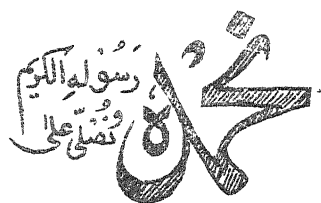 نحمده
وَنُصَلِّى عَلىٰ
رَسُولهِ الكريم